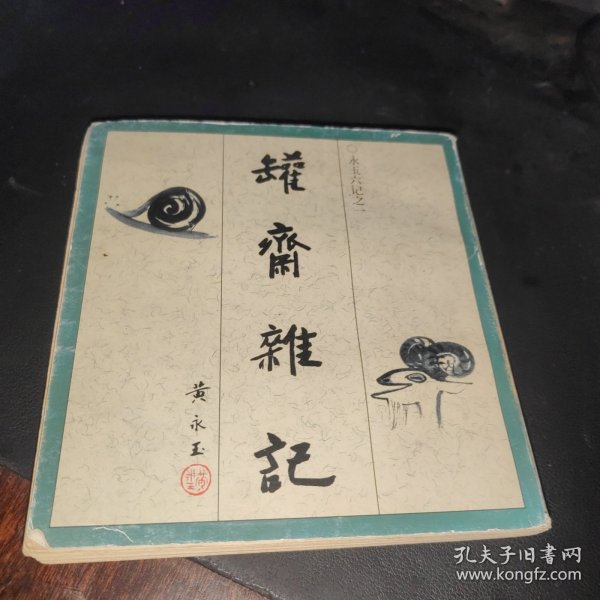 ○永玉六记之一
罐齋雜記
黄永玉
孔夫子旧書网
www.kongfz.com